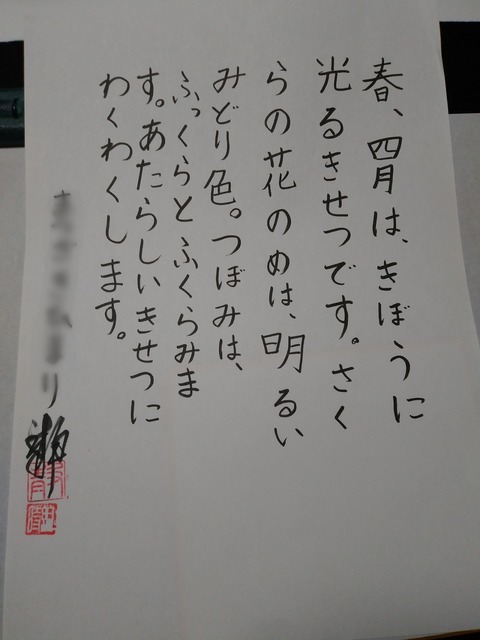 春、四月は、きぼうに
光るきせつです。さく
らの花のめは、明るい
みどり色。つぼみは、
ふっくらとふくらみま
す。あたらしいきせつに
わくわくします。
り